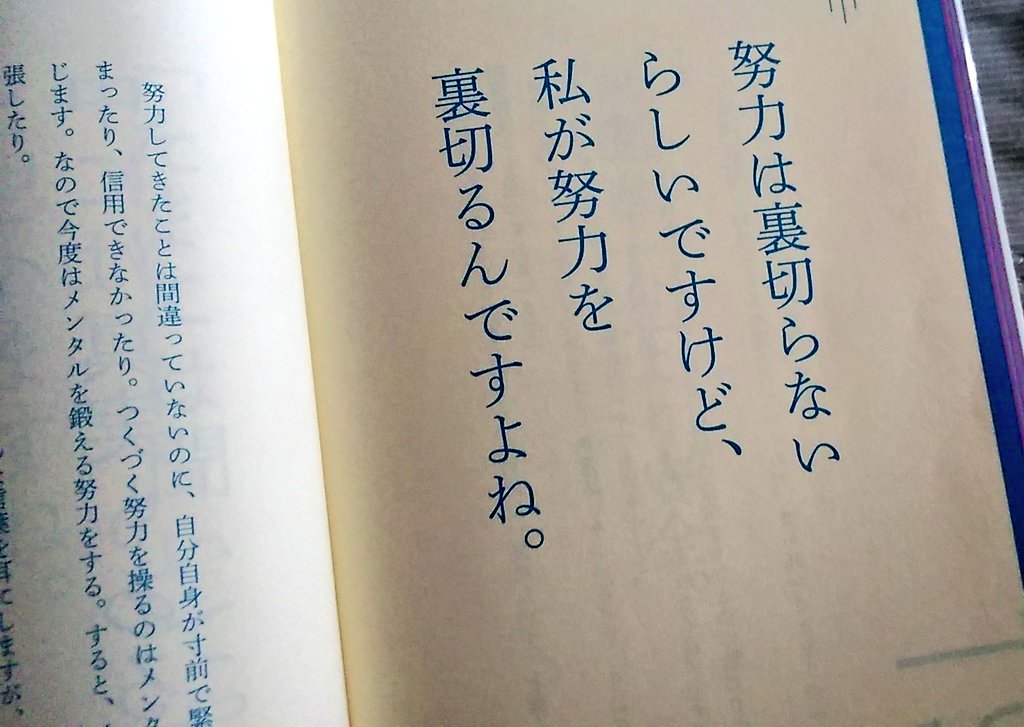 努力は裏切らない
らしいですけど、
私が努力を
裏切るんですよね。
努力してきたことは間違っていないのに、自分自身が寸前で緊
まったり、信用できなかったり。つくづく努力を操るのはメンタ
じます。なので今度はメンタルを鍛える努力をする。すると、
張したり。
言葉を耳にしますが、